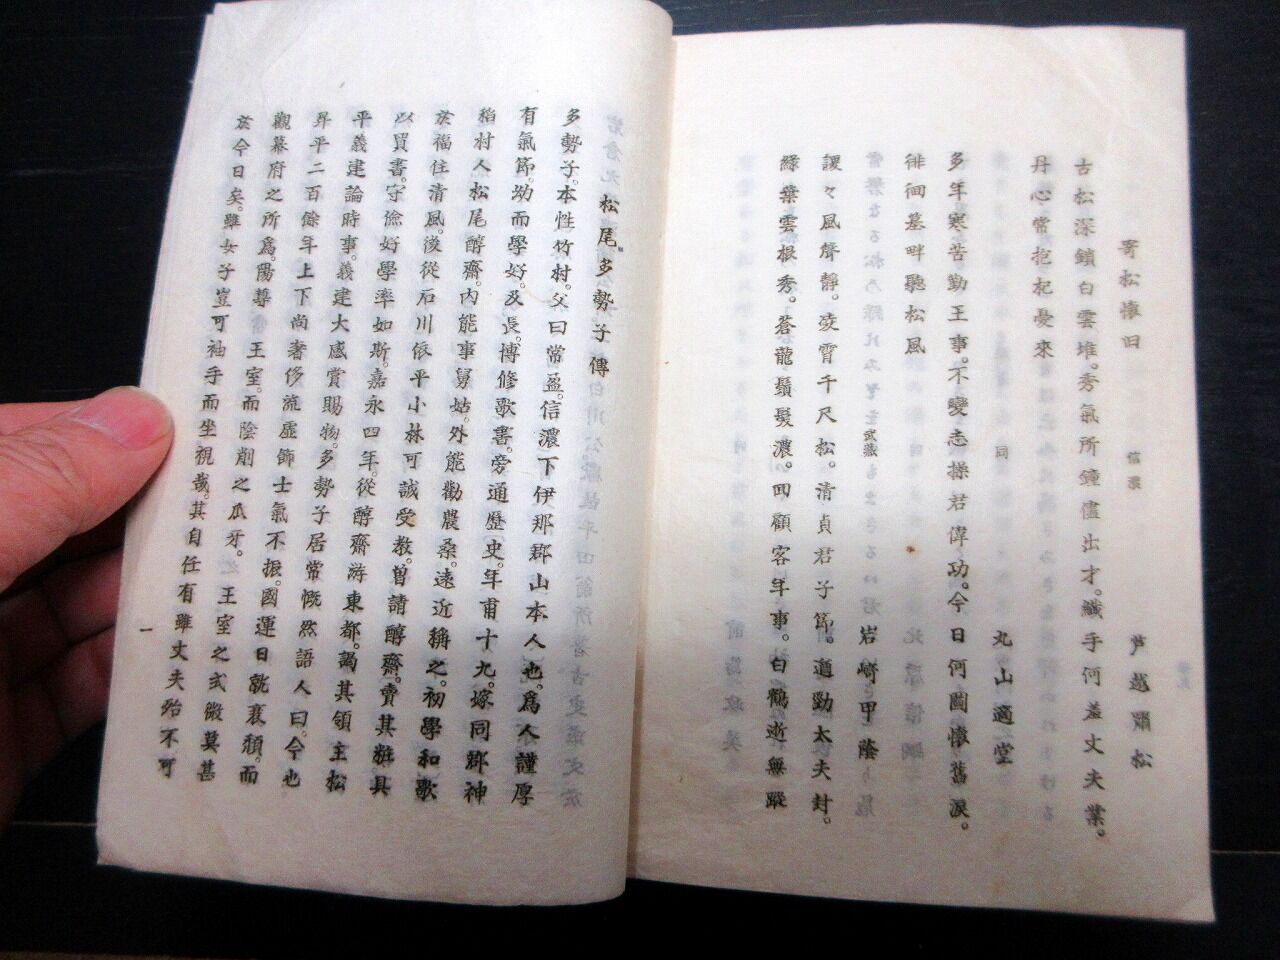 寄松懷旧
信濃 芦越豲松
古松深鎖白雲堆。秀氣所鍾儘出才。纖手何羞丈夫業。
丹心常抱杞憂來
同 丸山適堂
多年寒苦勤王事。不變志操君偉功。今日何圖懷舊淚。
徘徊墓畔聽松風
武藏 岩崎甲蔭
謖々風聲靜。凌霄千尺松。清貞君子節。遒勁大夫封。
綠葉雲根秀。蒼龍鬚髮濃。回顧客年事。白鶴逝無蹤
松尾多勢子傳
多勢子。本性竹村。父曰常盈。信濃下伊那郡山本人也。爲人謹厚
有氣節。幼而學好。及長。博修歌書。旁通歷史。年甫十九。嫁同郡神
稻村人松尾醇齋。內能事舅姑。外能勸農桑。遠近稱之。初學和歌
於福住清風。後從石川依平小林可誠受教。曾請醇齋。賣其粧具
以買書。守儉好學率如斯。嘉永四年。從醇齋游東都。謁其領主松
平義建論時事。義建大感賞賜物。多勢子居常慨然語人曰。今也
昇平二百餘年上下尚奢侈流虛飾士氣不振。國運日就衰頹。而
觀幕府之所爲。陽尊 王室。而陰削之瓜牙。 王室之式微莫甚
於今日矣。雖女子豈可袖手而坐視哉。其自任有雖丈夫殆不可
一